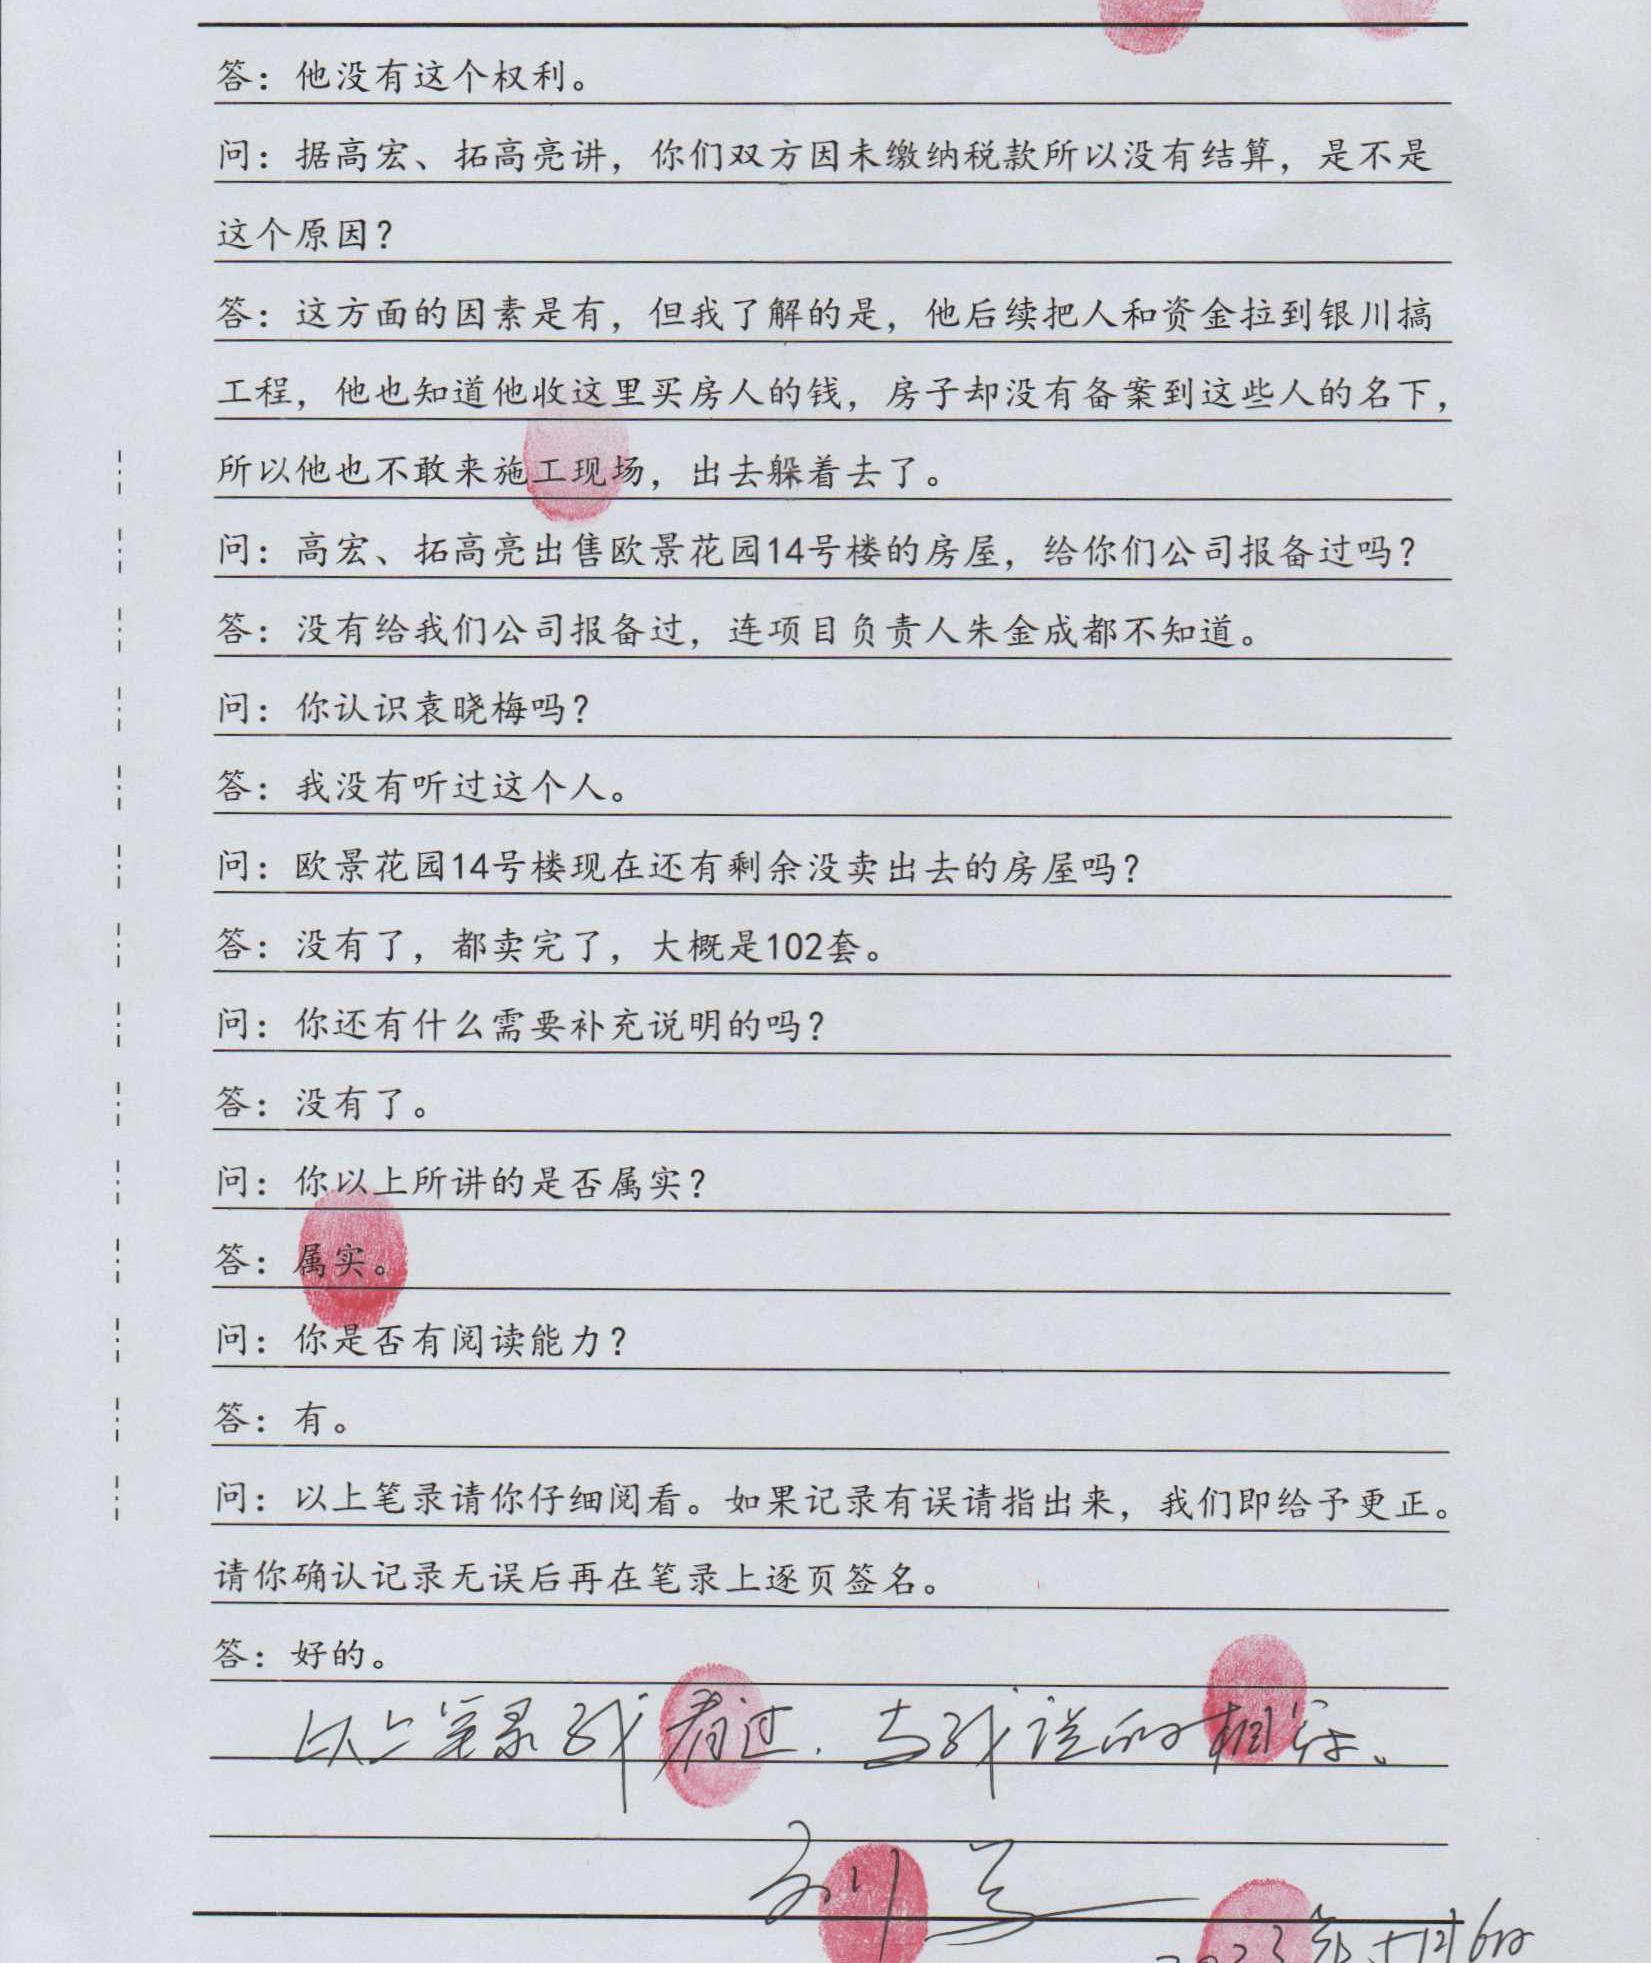 答：他没有这个权利。
问：据高宏、拓高亮讲，你们双方因未缴纳税款所以没有结算，是不是
这个原因？
答：这方面的因素是有，但我了解的是，他后续把人和资金拉到银川搞
工程，他也知道他收这里买房人的钱，房子却没有备案到这些人的名下，
所以他也不敢来施工现场，出去躲着去了。
问：高宏、拓高亮出售欧景花园14号楼的房屋，给你们公司报备过吗？
答：没有给我们公司报备过，连项目负责人朱金成都不知道。
问：你认识袁晓梅吗？
答：我没有听过这个人。
问：欧景花园14号楼现在还有剩余没卖出去的房屋吗？
答：没有了，都卖完了，大概是102套。
问：你还有什么需要补充说明的吗？
答：没有了。
问：你以上所讲的是否属实？
答：属实。
问：你是否有阅读能力？
答：有。
问：以上笔录请你仔细阅看。如果记录有误请指出来，我们即给予更正。
请你确认记录无误后再在笔录上逐页签名。
答：好的。
以上笔录我看过，与我说的相符。
刘
2023年十月6日